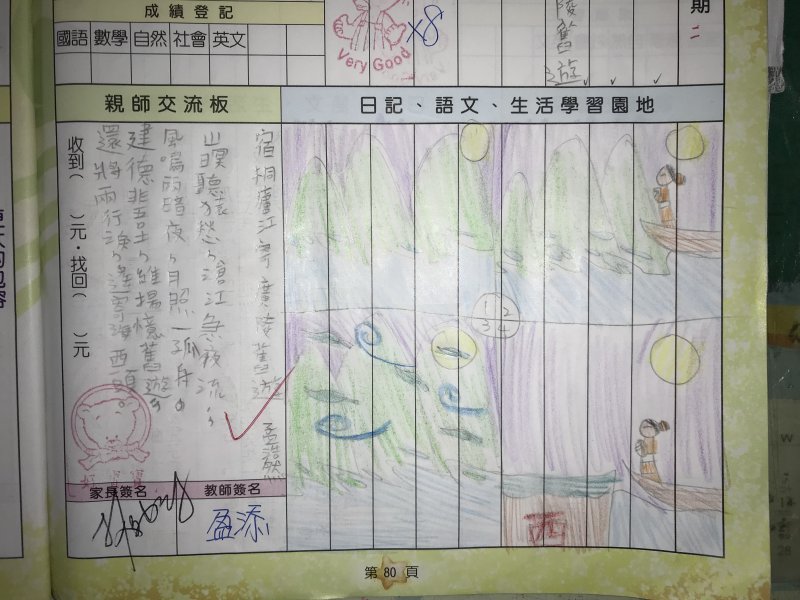 成績登記
國語 數學 自然 社會 英文
Very Good
x8
陵舊遊
期
二
親師交流板
日記、語文、生活學習園地
宿桐廬江寄廣陵舊遊 孟浩然
山暝聽猿愁,滄江急夜流,
風鳴兩暗夜,月照一孤舟。
建德非吾土,維揚憶舊遊,
還將兩行淚,遠寄海西頭。
收到( )元.找回( )元
1 2
3 4
西
家長簽名
教師簽名
盈添
第 80 頁